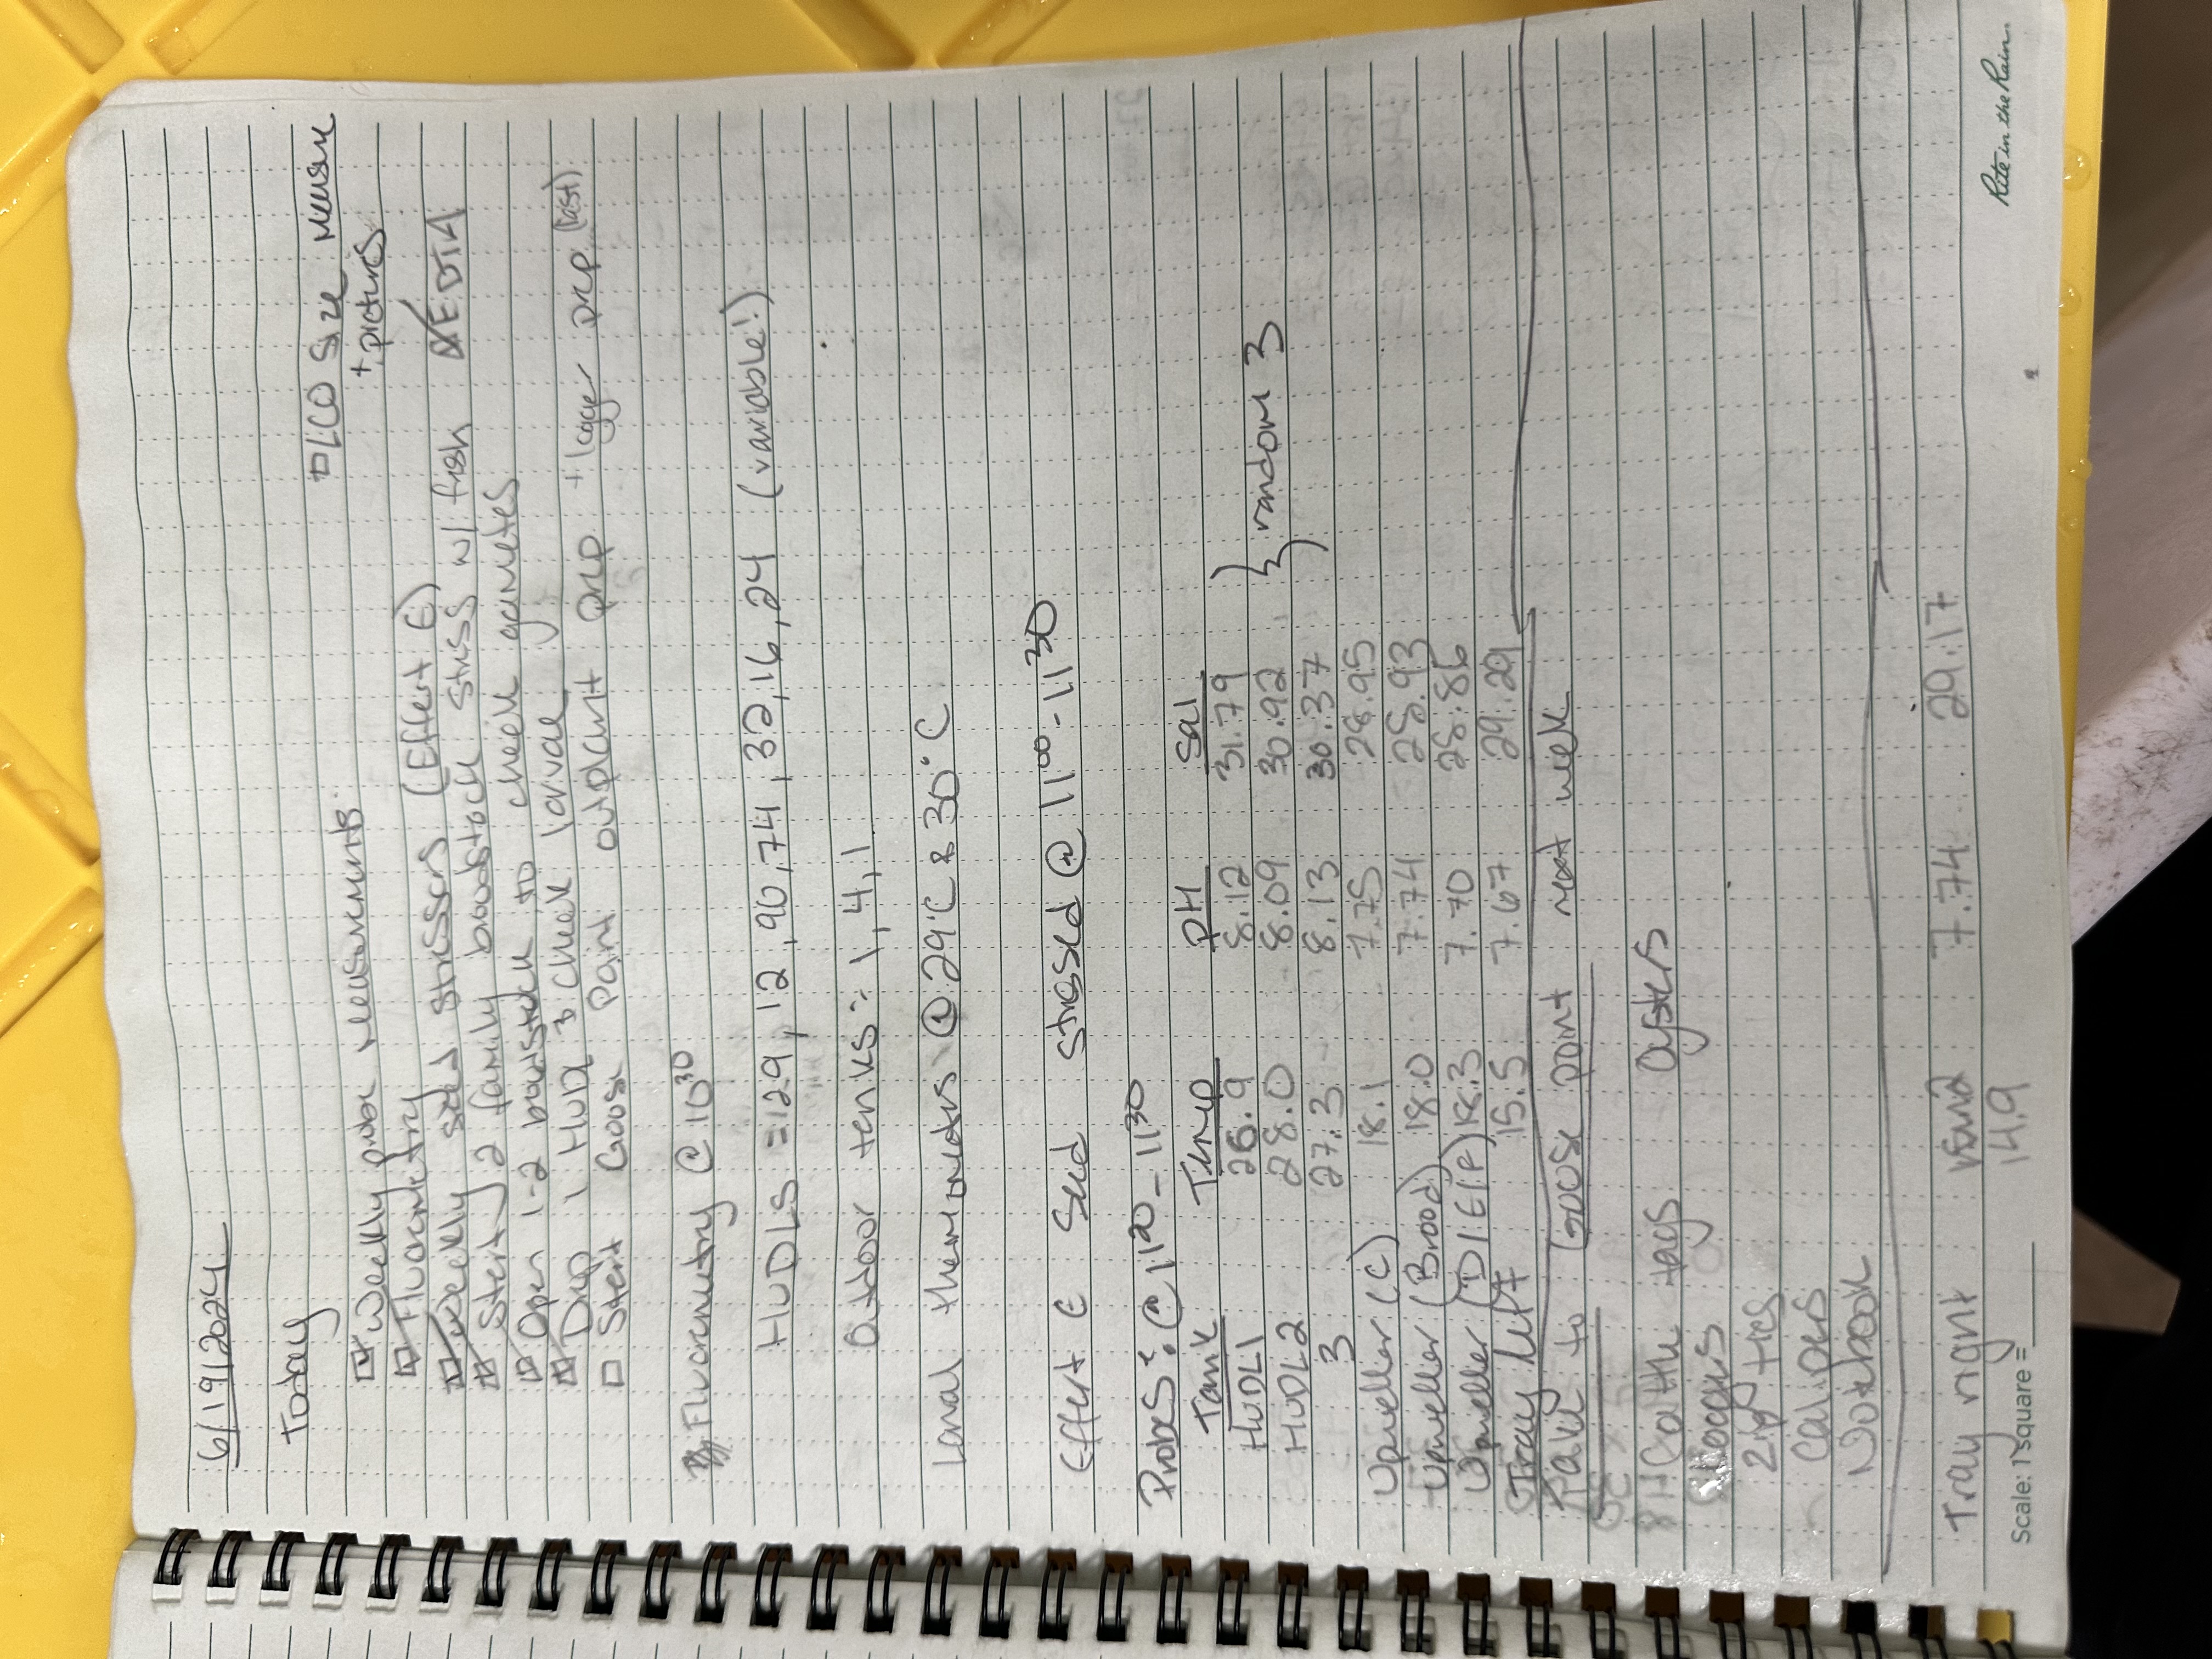 6/19/2024
Today
Weekly probe measurements
□ LCO Size Measure
+ pictures
Fluorometry
Weekly seed stressers (Effort E)
Start 2 family broodstock stress w/ fish
EDTA
Open 1-2 broodstock to check gametes
Drop 1 HUDL & check larvae
□ Start Goose Point outplant prep + logger prep (last)
Fluorometry @ 10³⁰
HUDLS = 129, 12, 90, 74, 32, 16, 24 (variable!)
Outdoor tanks = 1, 4, 1
Larval thermometers @ 29°C & 30°C
Effort E Seed stressed @ 11⁰⁰-11³⁰
Probes: @ 11²⁰-11³⁰
Tank Temp pH Sal
HUDL1 26.9 8.12 31.79
HUDL2 28.0 8.09 30.92 } random 3
3 27.3 8.13 30.37
Upweller (C) 18.1 7.75 28.95
Upweller (Brood) 18.0 7.74 28.93
Upweller (D/E/F) 18.3 7.70 28.86
Tray left 15.5 7.67 29.29
Take to Goose point next week
Cattle tags Oysters
Loggers
Zip ties
Calipers
Notebook
Tray right 7.74 29.17
14.9
Scale: 1 square =
Rite in the Rain.